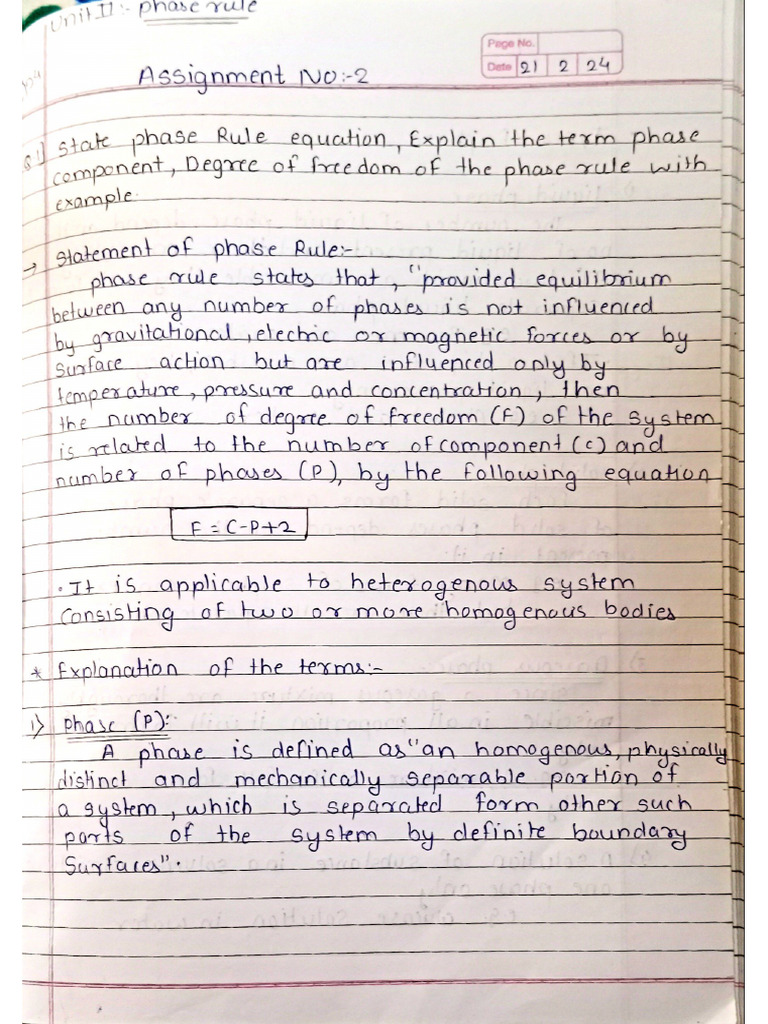 Unit II :- phase rule
Page No.
Date 21 2 24
Assignment No:-2
Q1) State phase Rule equation, Explain the term phase
component, Degree of freedom of the phase rule with
example.
→ Statement of phase Rule:-
phase rule states that, "provided equilibrium
between any number of phases is not influenced
by gravitational, electric or magnetic forces or by
surface action but are influenced only by
temperature, pressure and concentration, then
the number of degree of freedom (F) of the system
is related to the number of component (c) and
number of phases (P), by the following equation
F = C-P+2
· It is applicable to heterogenous system
Consisting of two or more homogenous bodies
* Explanation of the terms:-
1) Phase (P):-
A phase is defined as "an homogenous, physically
distinct and mechanically separable portion of
a system, which is separated form other such
parts of the system by definite boundary
Surfaces".